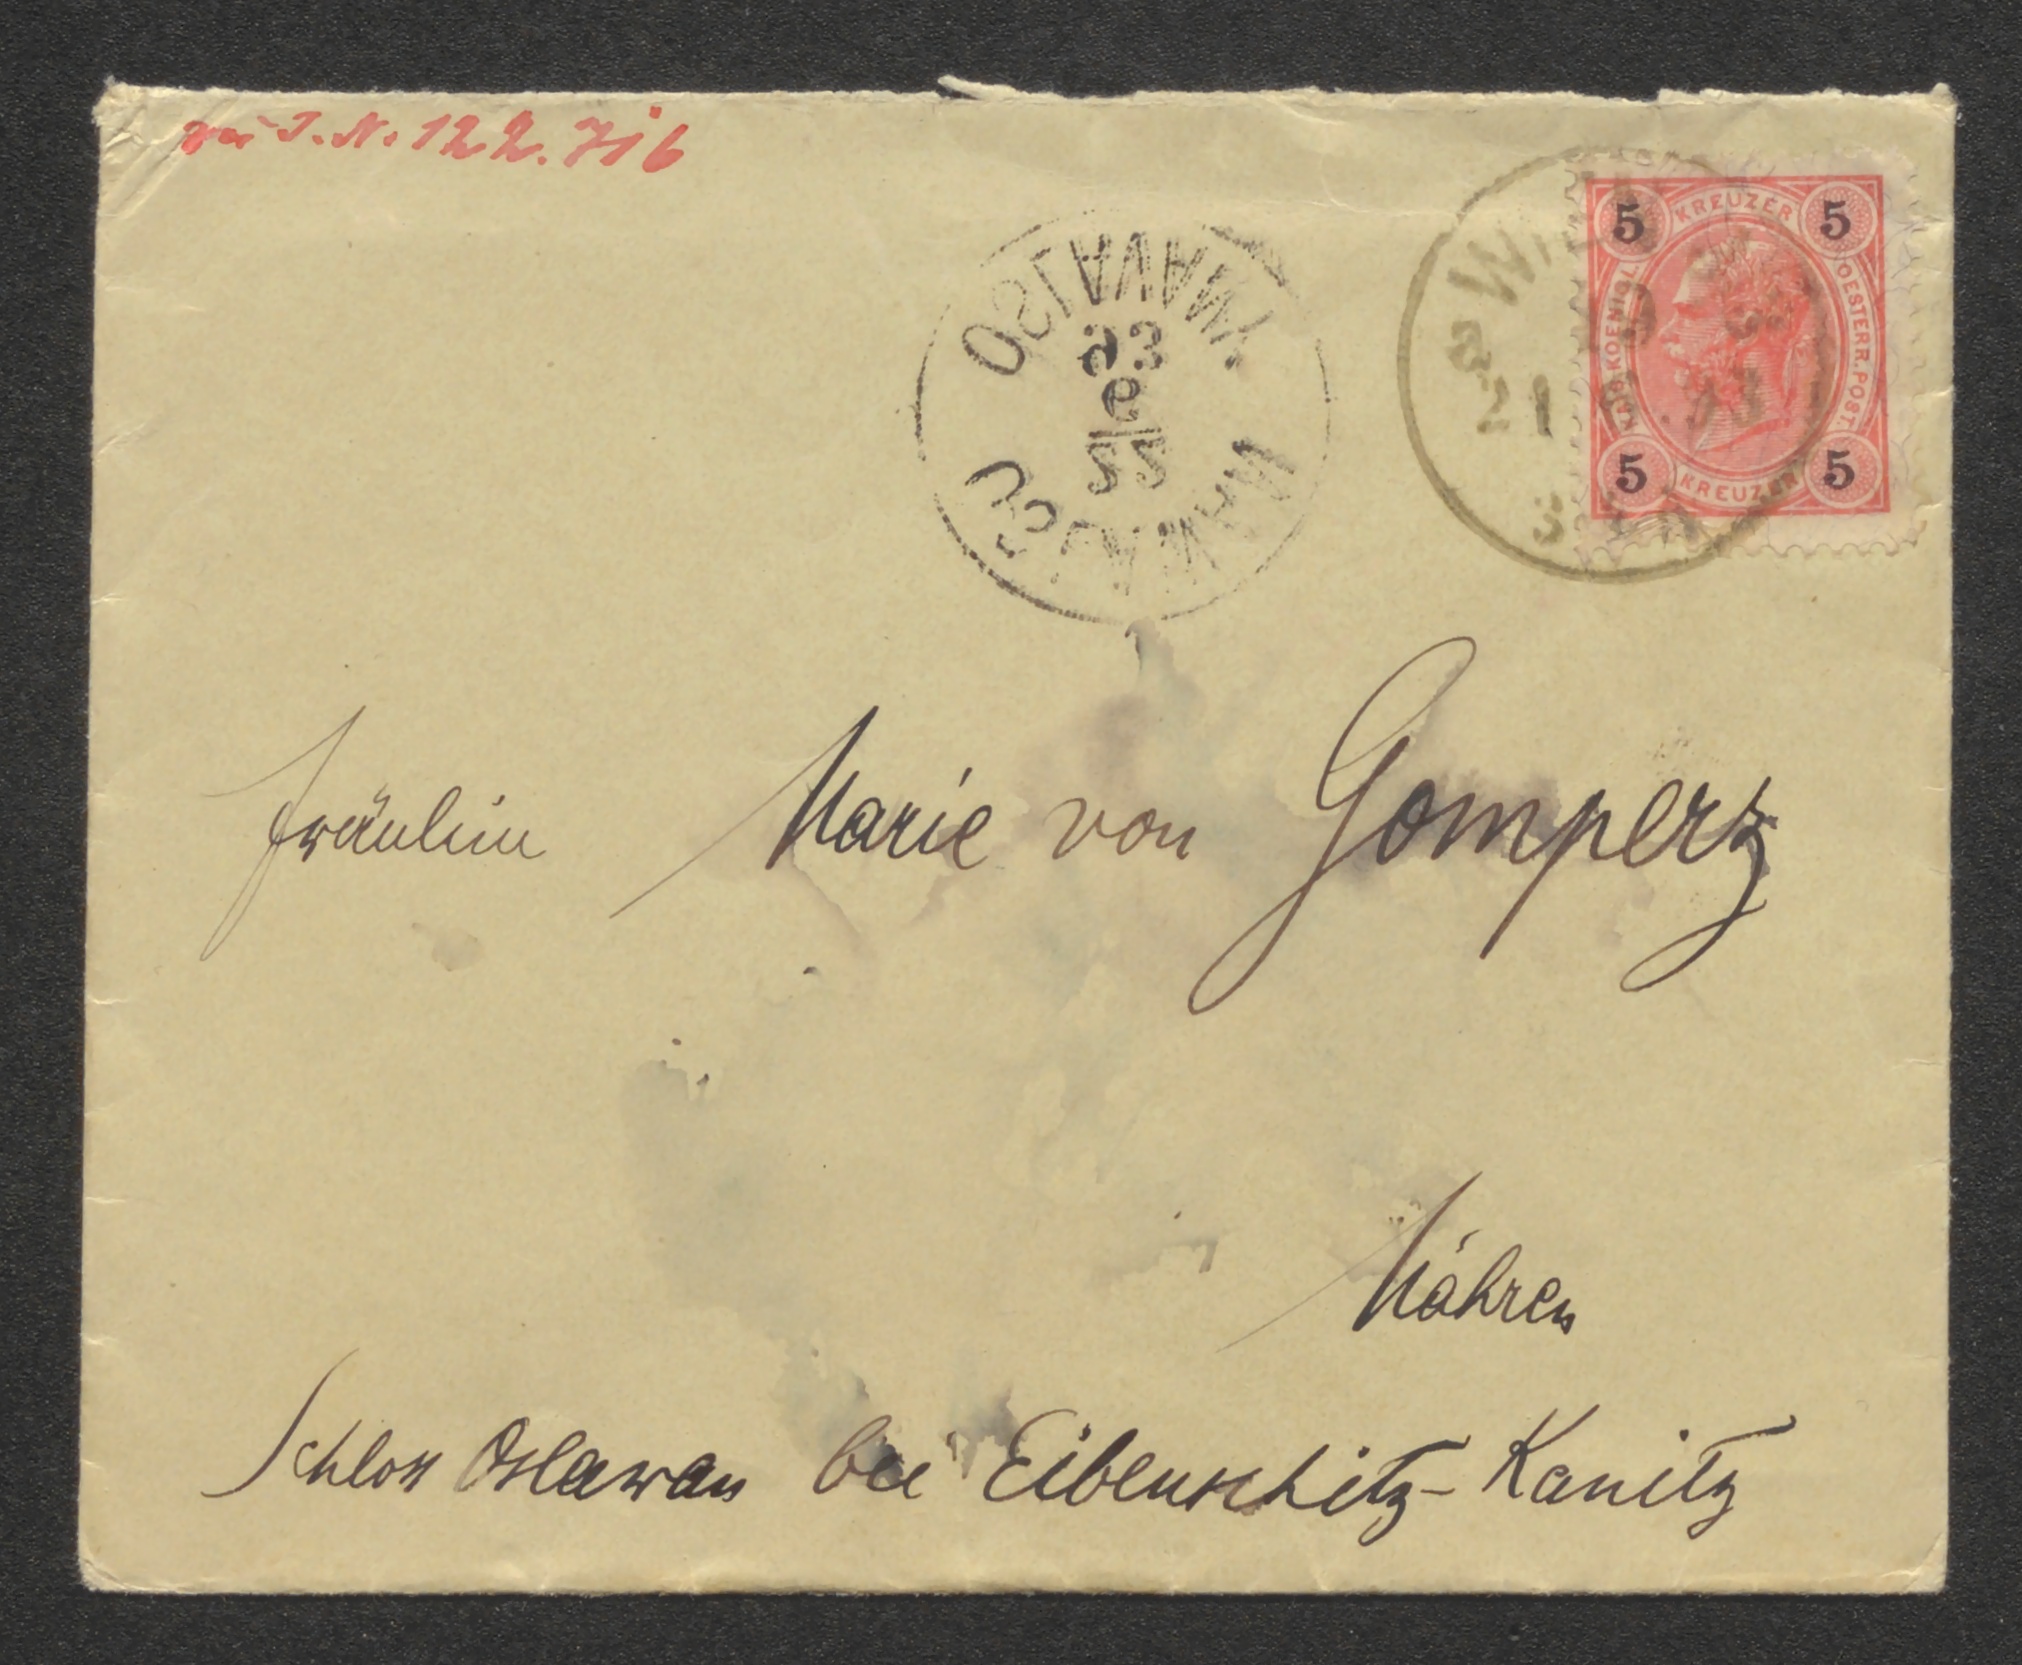 zu I.N. 122.716
5 KREUZER 5
KAIS. KOENIGL. OESTERR. POST.
5 KREUZER 5
WIEN
21
93
OSLAWAN
22
9
93
OSLAVANY
Fräulein Marie von Gomperz
Mähren
Schloss Oslawan bei Eibenschitz-Kanitz